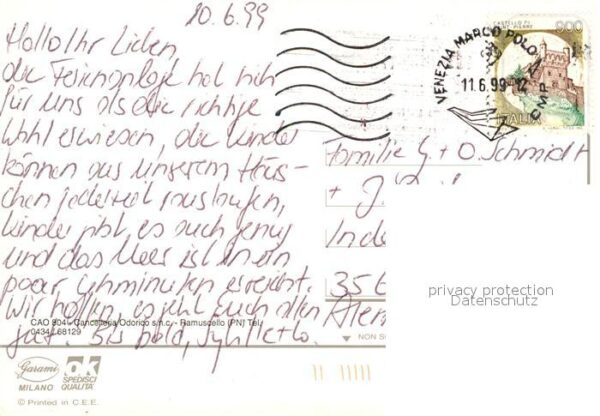 10.6.99
Hallo Ihr Lieben,
die Ferienanlage hat sich
für uns als die richtige
Wahl erwiesen, die Kinder
können aus unserem Häus-
chen jederzeit rauslaufen,
Kinder gibt es auch genug
und das Meer ist in ein
paar Gehminuten erreicht.
Wir hoffen, es geht Euch allen
gut. Bis bald,
CASTELLO DI
900
ITALIA
VENEZIA MARCO POLO
11.6.99-12
CMP
Familie G + O. Schmidt
+ J.
In de
35
privacy protection
Datenschutz
CAO 904 - Cancelleria Odorico s.n.c. - Ramuscello (PN) Tel.
0434/68129
NON S
Garami
MILANO
OK
SPEDISCI
QUALITA'
© Printed in C.E.E.